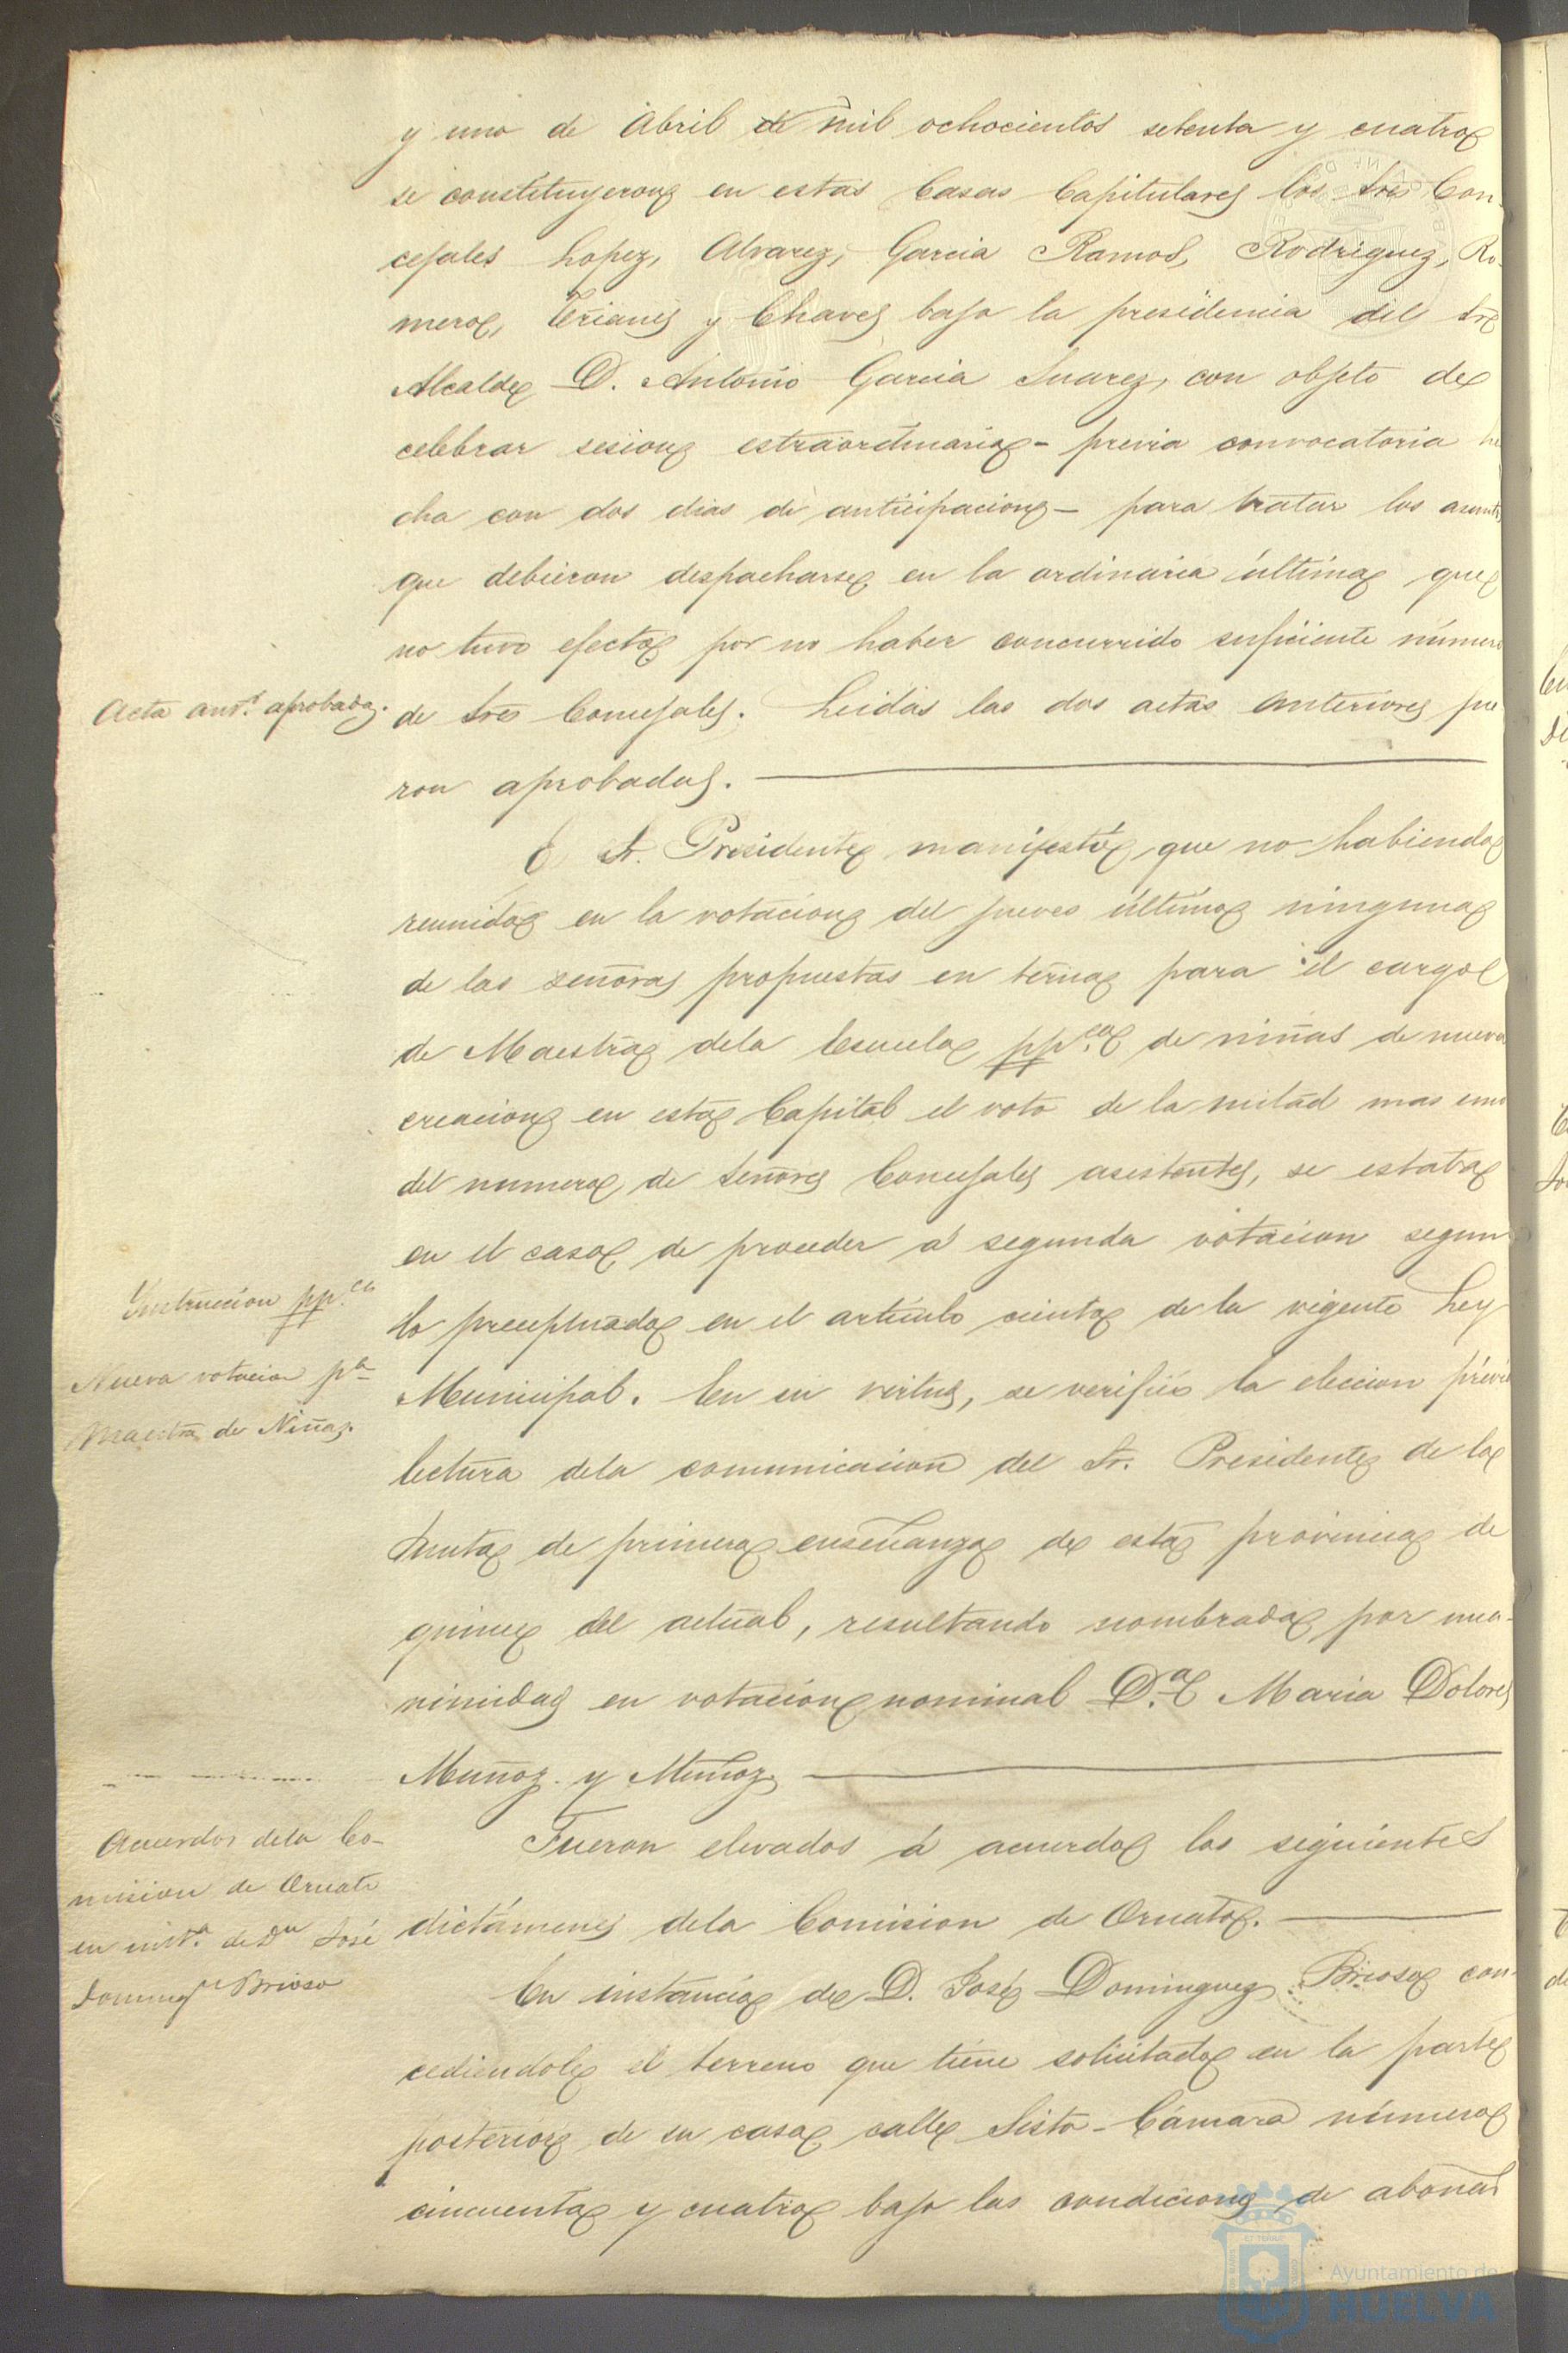 y uno de Abril de mil ochocientos setenta y cuatro
se constituyeron en estas Casas Capitulares los Sres Con-
cejales Lopez, Alvarez, Garcia Ramos, Rodriguez, Ro-
mero, Trianes y Chaves bajo la presidencia del Sr
Alcalde D. Antonio Garcia Suarez, con objeto de
celebrar sesion estraordinaria - previa convocatoria he
cha con dos dias de anticipacion - para tratar los asuntos
que debieron despacharse en la ordinaria última que
no tuvo efecto por no haber concurrido suficiente número
Acta antr. aprobada.
de Sres Concejales. Leidas las dos actas anteriores fue
ron aprobadas.
El Sr. Presidente manifestó que no habiendo
reunido en la votacion del jueves último ninguna
de las señoras propuestas en terna para el cargo
de Maestra dela Escuela ppca de niñas de nueva
creacion en esta Capital el voto de la mitad mas uno
del numero de Señores Concejales asistentes, se estaba
en el caso de proceder á segunda votacion segun
Instruccion ppca
Nueva votacion pa
Maestra de Niñas.
lo preceptuado en el artículo ciento de la vigente Ley
Municipal. En su virtud, se verificó la eleccion prévia
lectura dela comunicacion del Sr. Presidente de la
Junta de primera enseñanza de esta provincia de
quince del actual, resultando nombrada por una-
nimidad en votacion nominal D.a Maria Dolores
Muñoz y Muñoz
Acuerdos dela Co-
mision de Ornato
en insta. de Dn José
Doming.ez Brioso
Fueron elevados á acuerdo los siguientes
dictámenes dela Comision de Ornato.
En instancia de D. José Dominguez Brioso con-
cediendole el terreno que tiene solicitado en la parte
posterior de su casa calle Sisto-Cámara número
cincuenta y cuatro bajo las condiciones de abonar
Ayuntamiento de
HUELVA